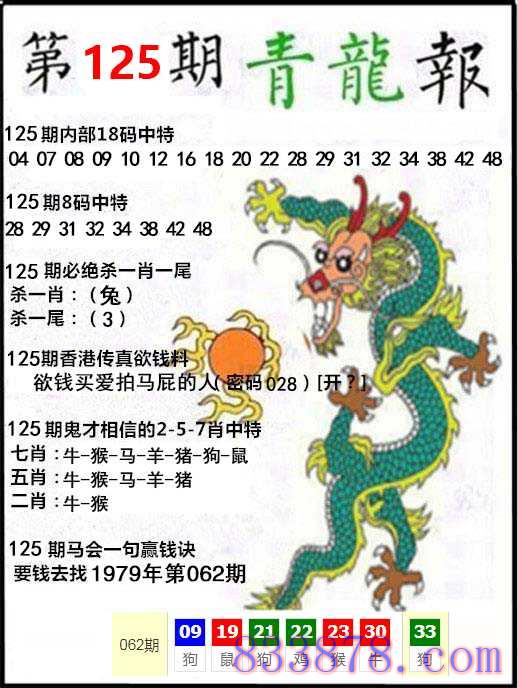 第125期青龍報
125期内部18码中特
04 07 08 09 10 12 16 18 20 22 28 29 31 32 34 38 42 48
125期8码中特
28 29 31 32 34 38 42 48
125期必绝杀一肖一尾
杀一肖：（兔）
杀一尾：（3）
125期香港传真欲钱料
欲钱买爱拍马屁的人（密码028）[开？]
125期鬼才相信的2-5-7肖中特
七肖：牛-猴-马-羊-猪-狗-鼠
五肖：牛-猴-马-羊-猪
二肖：牛-猴
125期马会一句赢钱诀
要钱去找1979年第062期
062期 09 19 21 22 23 30 33
狗 鼠 狗 鸡 猴 牛 狗
833878.com